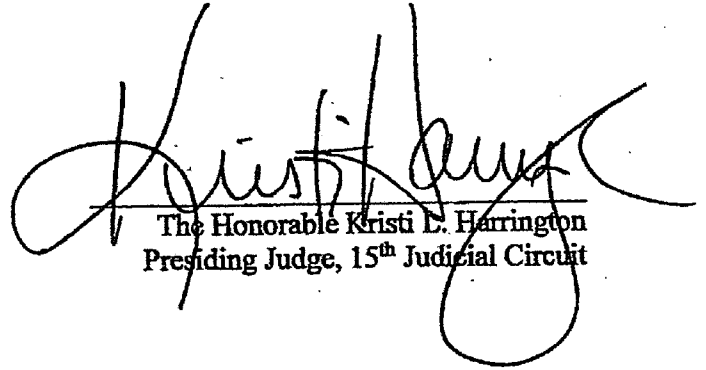 Kristi Harring
The Honorable Kristi L. Harrington
Presiding Judge, 15th Judicial Circuit